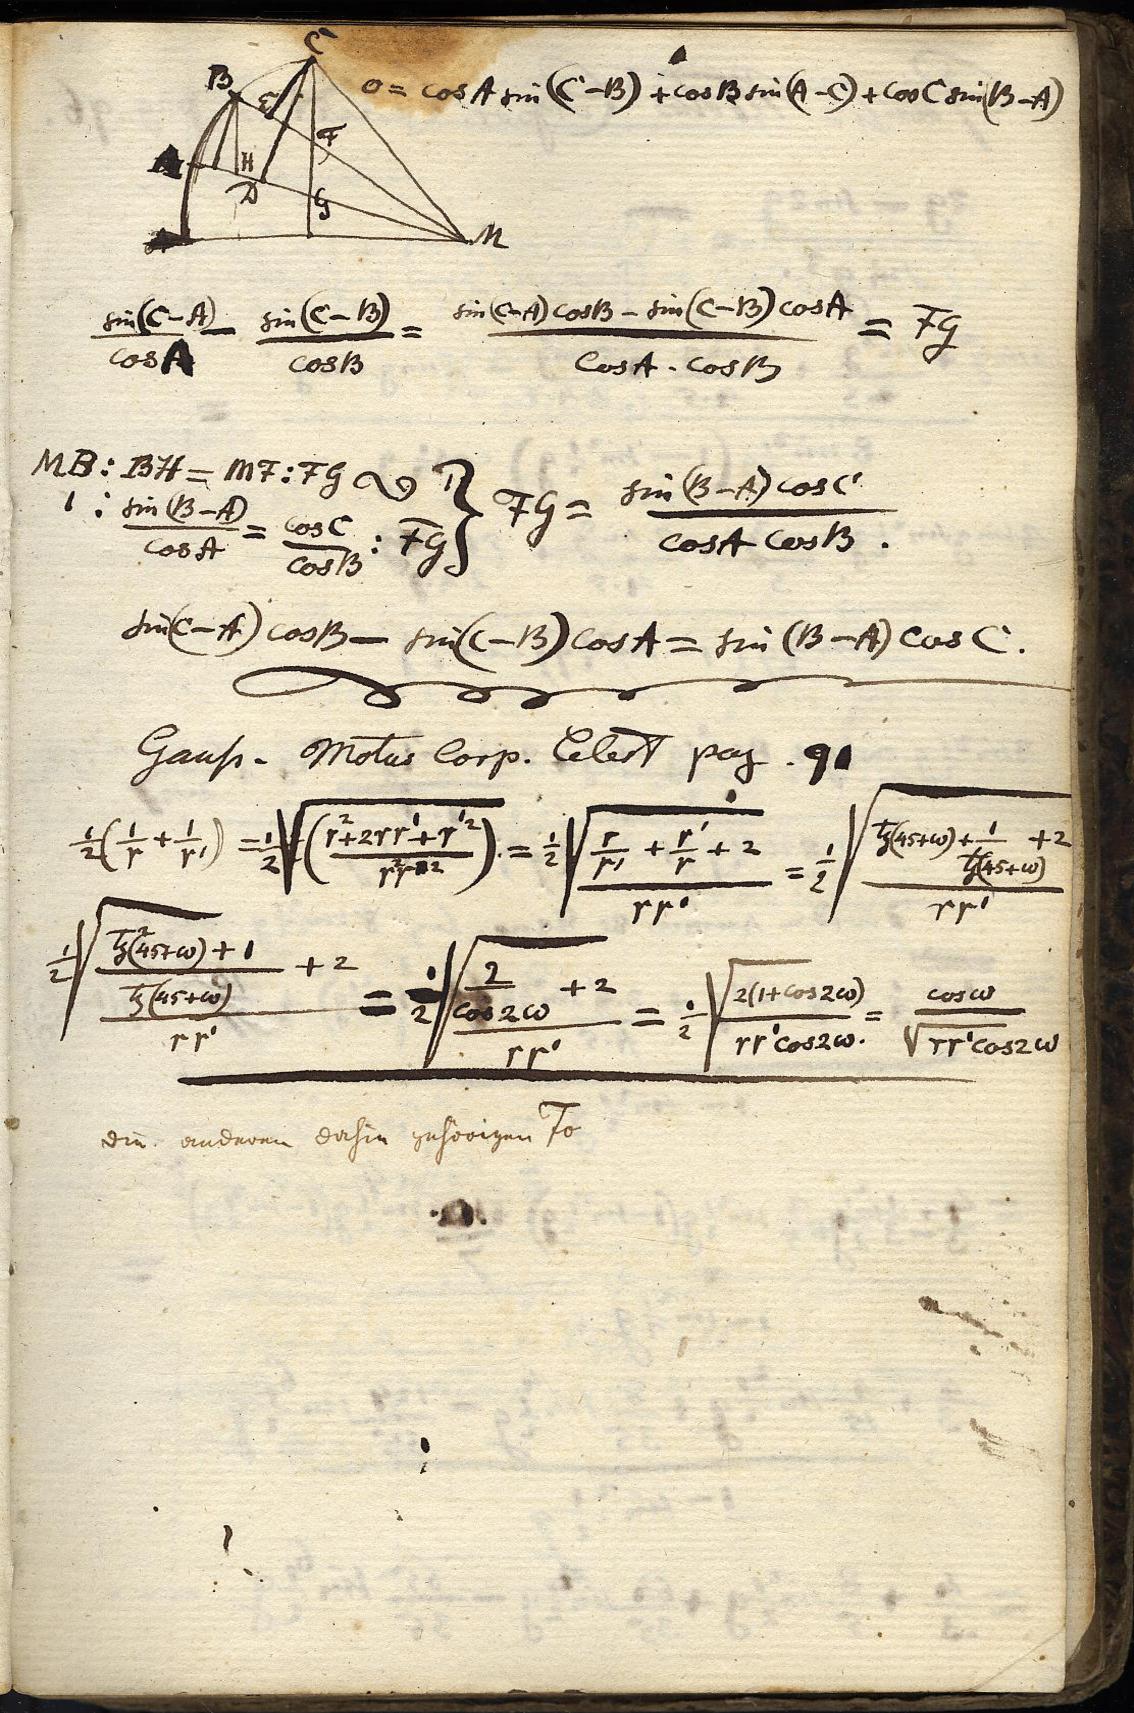 C
B
E
0 = cosA sin(C-B) + cosB sin(A-C) + cosC sin(B-A)
F
A
H
D
G
M
sin(C-A)/cosA - sin(C-B)/cosB = (sin(C-A) cosB - sin(C-B) cosA)/(CosA . cosB) = FG
MB : BH = MF : FG
1 : sin(B-A)/cosA = cosC/cosB : FG } FG = sin(B-A) cosC/(cosA cosB) .
sin(C-A) cosB - sin(C-B) cosA = sin(B-A) Cos C.
Gauss. Motus Corp. Celest pag. 91
½(1/r + 1/r') = ½√((r²+2rr'+r'²)/(r²r'²)) = ½√((r/r' + r'/r + 2)/(rr')) = ½√((tg(45+ω) + 1/tg(45+ω) + 2)/(rr'))
½√(((tg²(45+ω)+1)/tg(45+ω) + 2)/(rr')) = ½√((2/cos2ω + 2)/(rr')) = ½√(2(1+cos2ω)/(rr'cos2ω)). = cosω/√(rr'cos2ω)
die anderen dahin gehörigen Fo